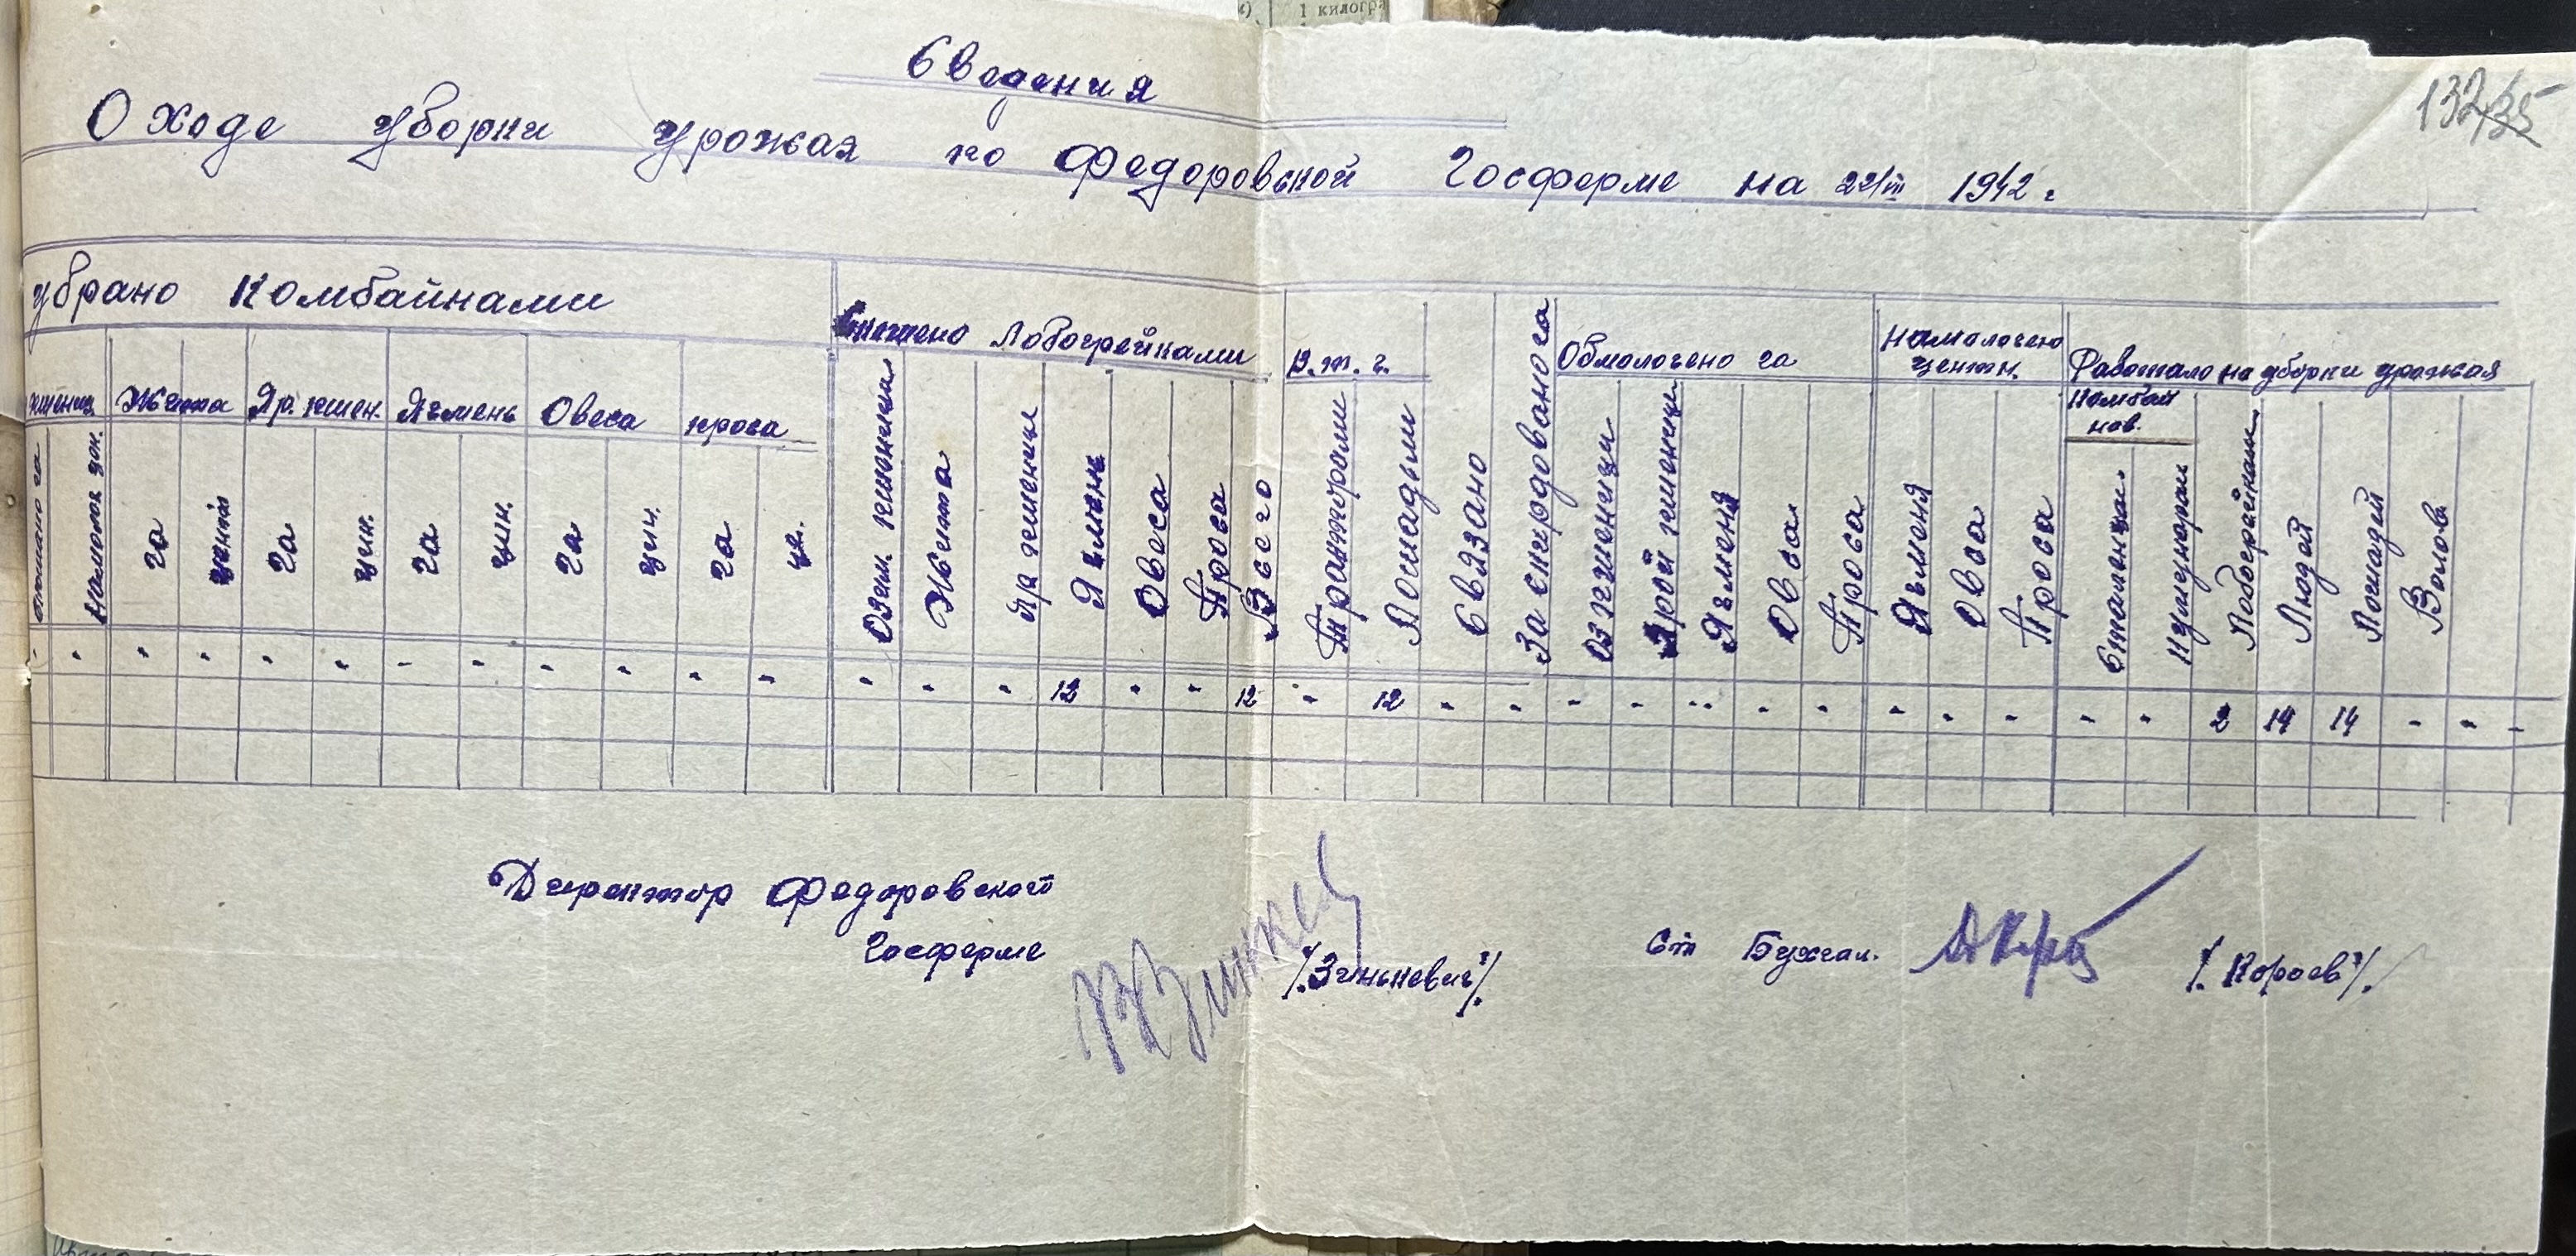 1 килогра
Сведения
132
35
О ходе уборки урожая по Федоровской Госферме на 22/VII 1942 г
убрано Комбайнами
Скошено Лобогрейками
В.т.ч.
Связано
За скирдовано га
Обмолочено га
Намолочено
центн.
Работало на уборки урожая
Комбай
нов.
Жита Яр. пшен. Ячмень Овеса проса
Намолот цен.
га центн га цен. га цен. га цен. га це.
Озим. пшеницы Жита Яр пшеницы Ячмень Овеса Проса Всего
Тракторами Лошадьми
Оз пшеницы Ярой пшеницы Ячменя Овса Проса
Ячменя Овса Проса
Сталинцы Коммунары Лобогрейки Людей Лошадей Волов
- - - - - - - - - - - - - - - 12 - - 12 - 12 - - - - - - - - - - - - 2 14 14 - - -
Директор Федоровской
Госферме
/.Зинькевич./
Ст Бухгал.
/.Короев./